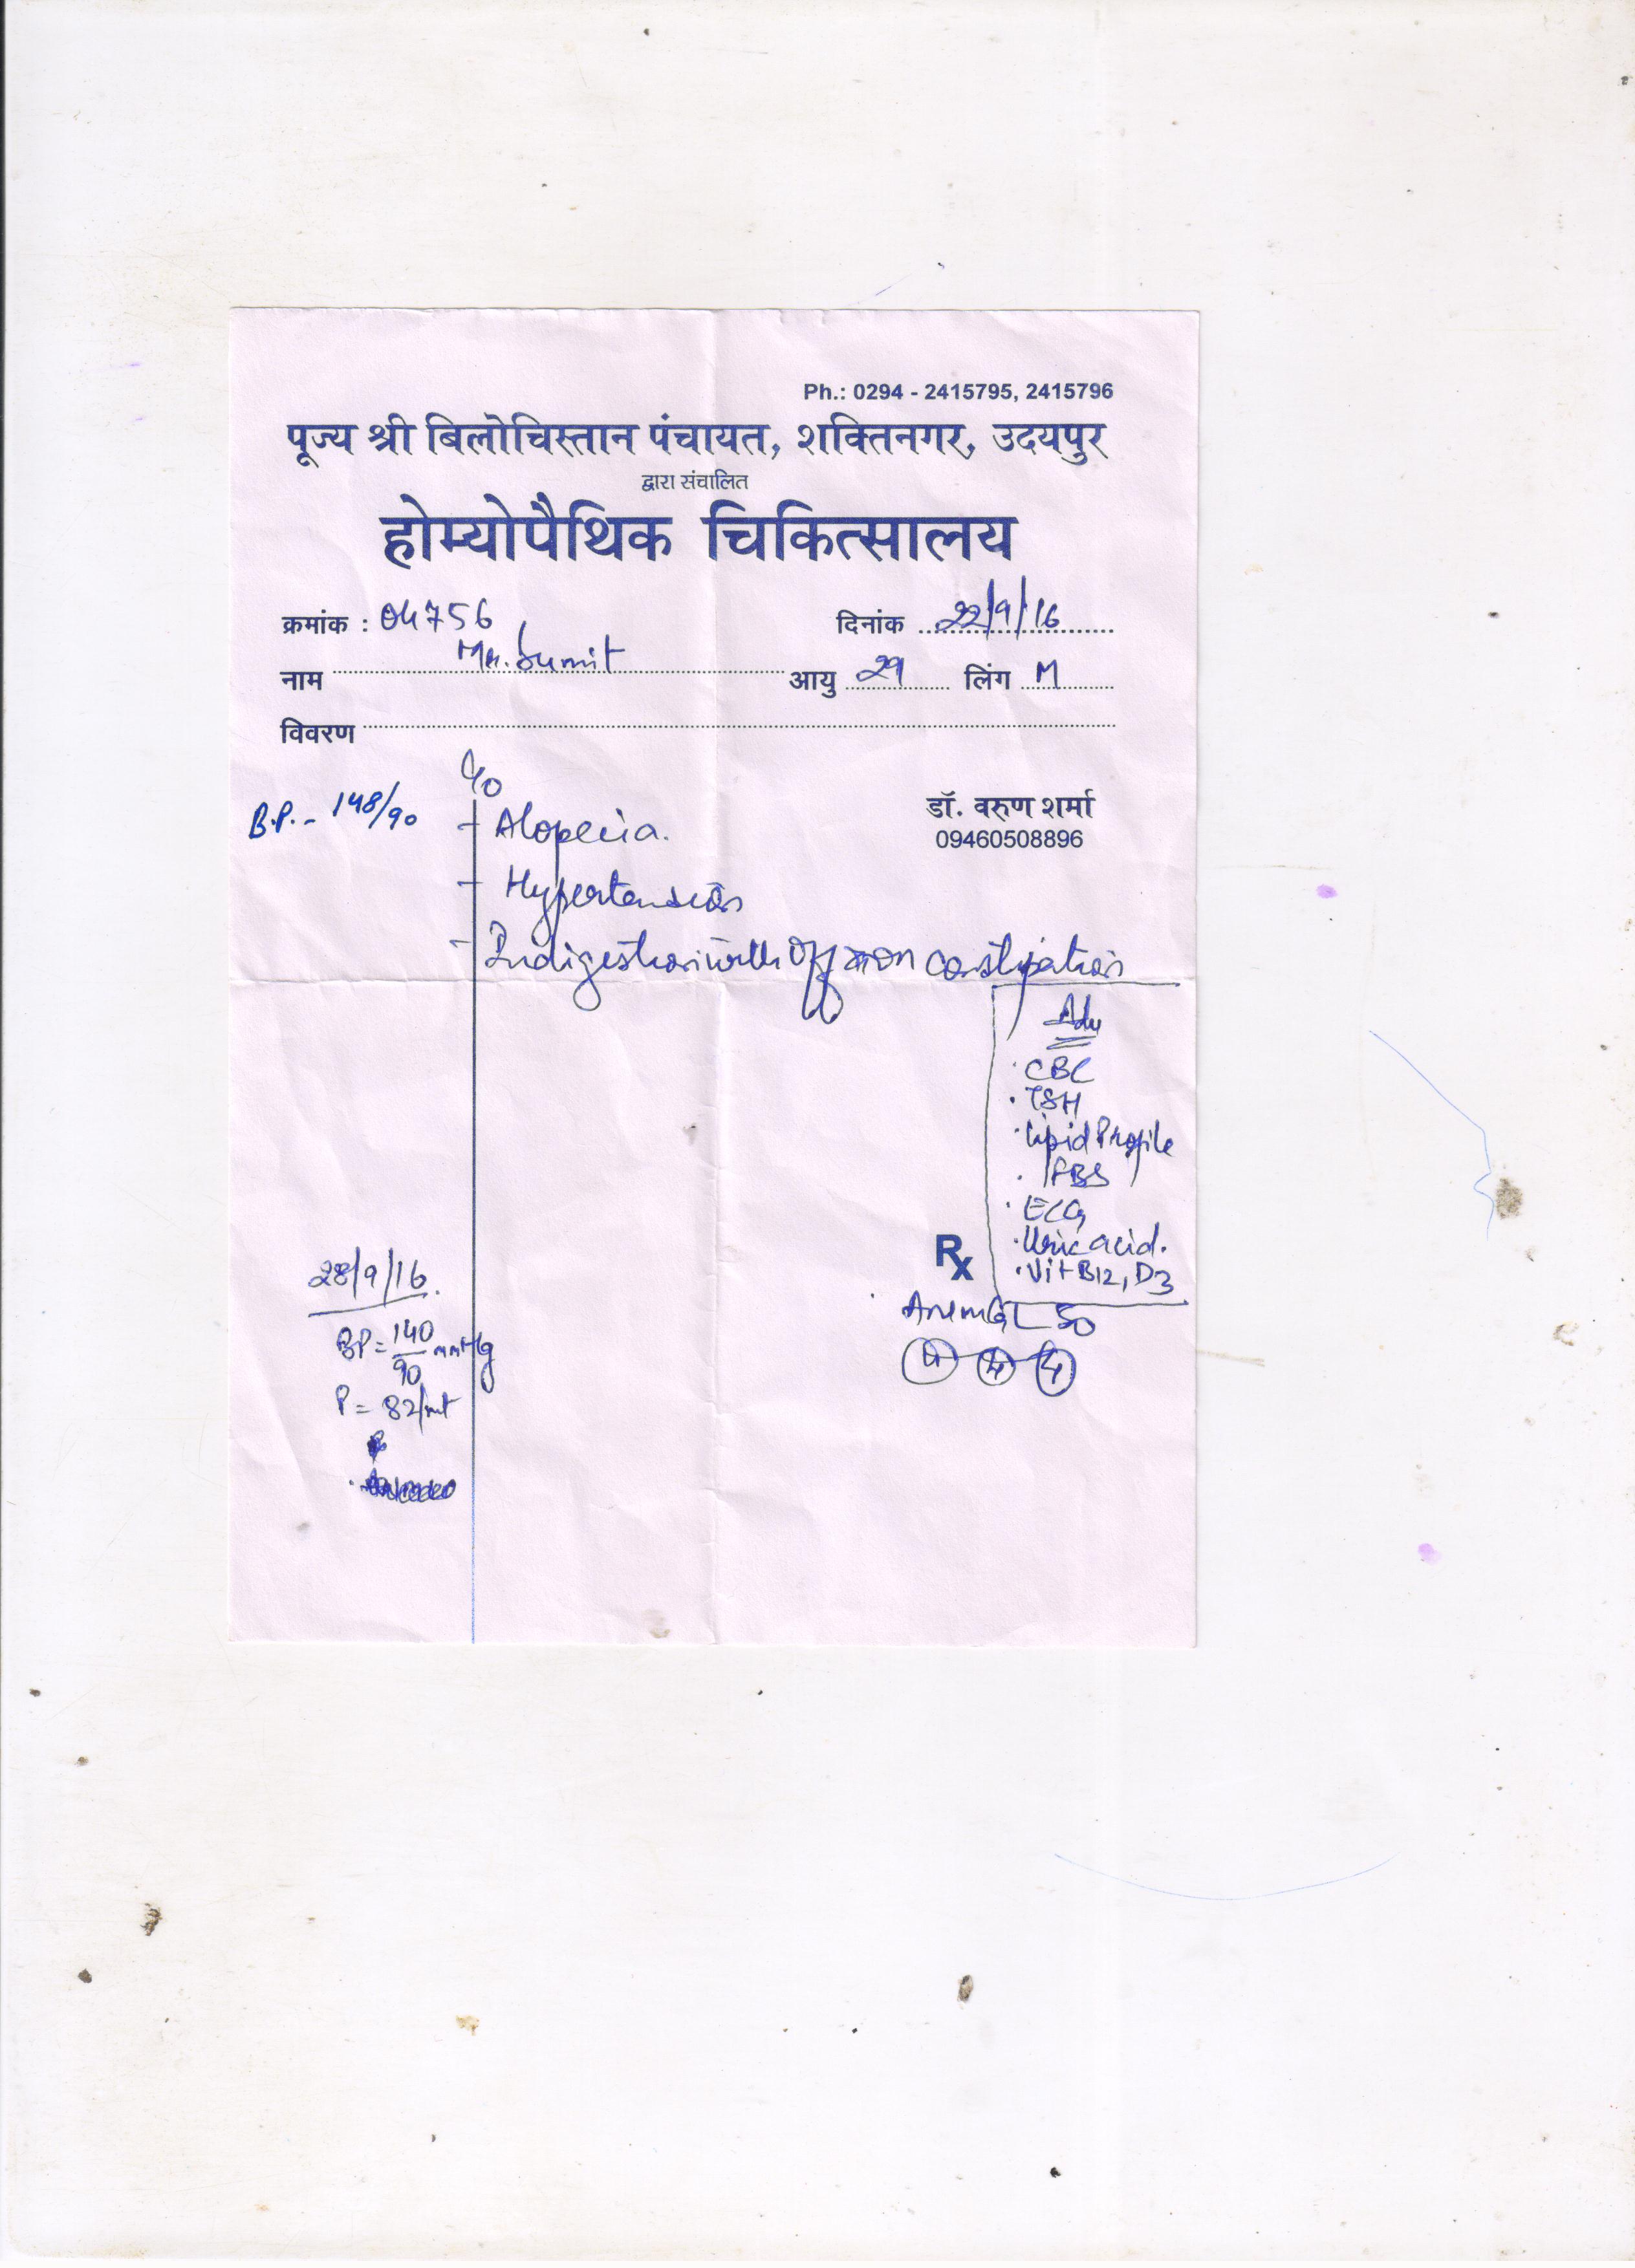 Ph.: 0294 - 2415795, 2415796
पूज्य श्री बिलोचिस्तान पंचायत, शक्तिनगर, उदयपुर
द्वारा संचालित
होम्योपैथिक चिकित्सालय
क्रमांक : 04756 दिनांक 22/9/16
नाम Mr. Sumit आयु 29 लिंग M
विवरण
C/o
B.P. - 148/90
- Alopecia.
डॉ. वरुण शर्मा
09460508896
- Hypertension
- Indigestion with off on constipation
Adv
· CBC
· TSH
· Lipid Profile
· FBS
· ECG
· Uric acid.
· Vit B12, D3
Rx
28/9/16.
BP = 140/90 mmHg
P = 82/mt
50